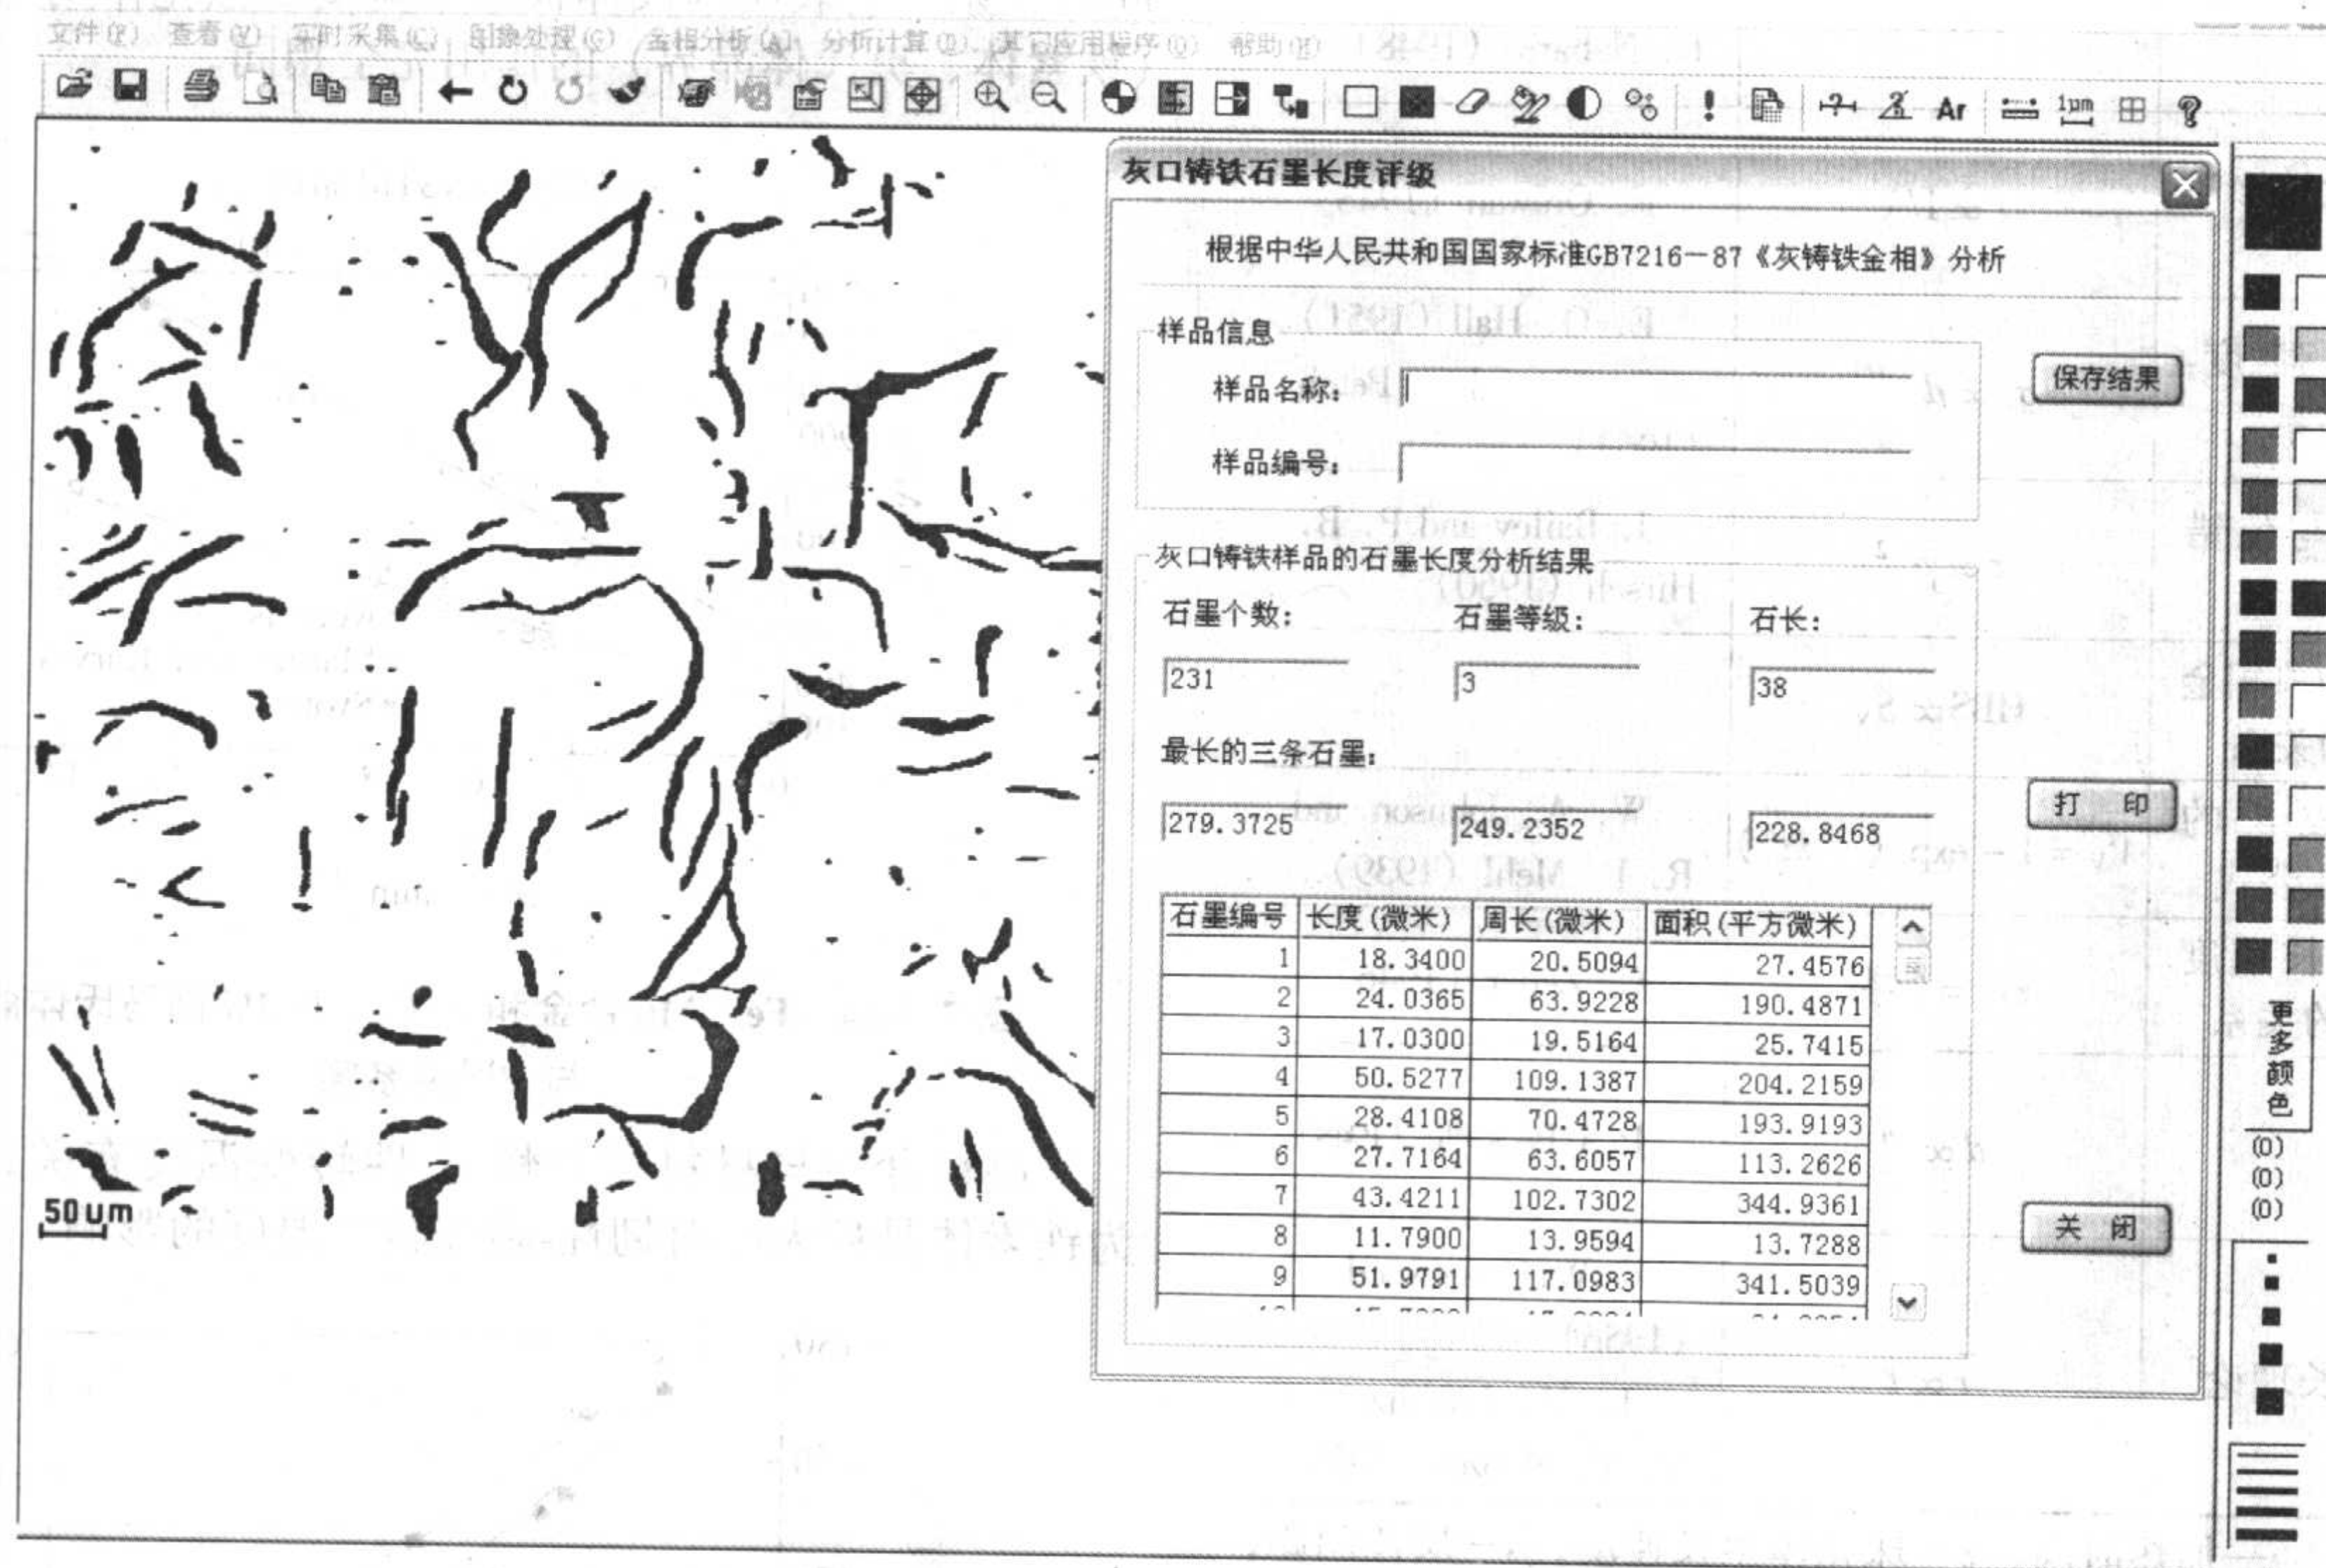 文件(F) 查看(V) 实时采集(C) 图象处理(G) 金相分析(A) 分析计算(D) 其它应用程序(O) 帮助(H)
Ar 1μm
灰口铸铁石墨长度评级
根据中华人民共和国国家标准GB7216—87《灰铸铁金相》分析
样品信息
样品名称:
样品编号:
保存结果
灰口铸铁样品的石墨长度分析结果
石墨个数: 石墨等级: 石长:
231 3 38
最长的三条石墨:
279.3725 249.2352 228.8468
打 印
石墨编号 长度(微米) 周长(微米) 面积(平方微米)
1 18.3400 20.5094 27.4576
2 24.0365 63.9228 190.4871
3 17.0300 19.5164 25.7415
4 50.5277 109.1387 204.2159
5 28.4108 70.4728 193.9193
6 27.7164 63.6057 113.2626
7 43.4211 102.7302 344.9361
8 11.7900 13.9594 13.7288
9 51.9791 117.0983 341.5039
关 闭
更多颜色
(0)
(0)
(0)
50um